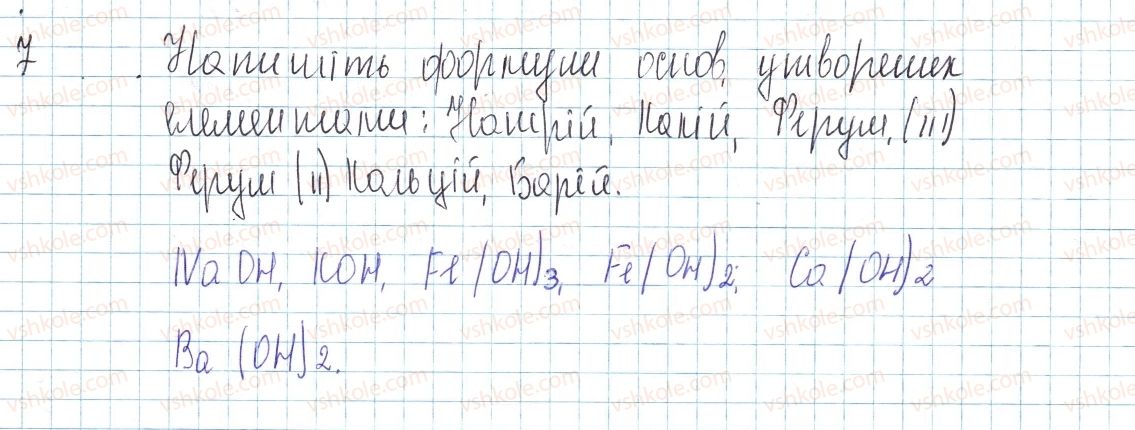 7 Напишіть формули основ, утворених
елементами: Натрій, Калій, Ферум, (III)
Ферум (II) Кальцій, Барій.
NaOH, KOH, Fe(OH)3, Fe(OH)2; Ca(OH)2
Ba(OH)2.